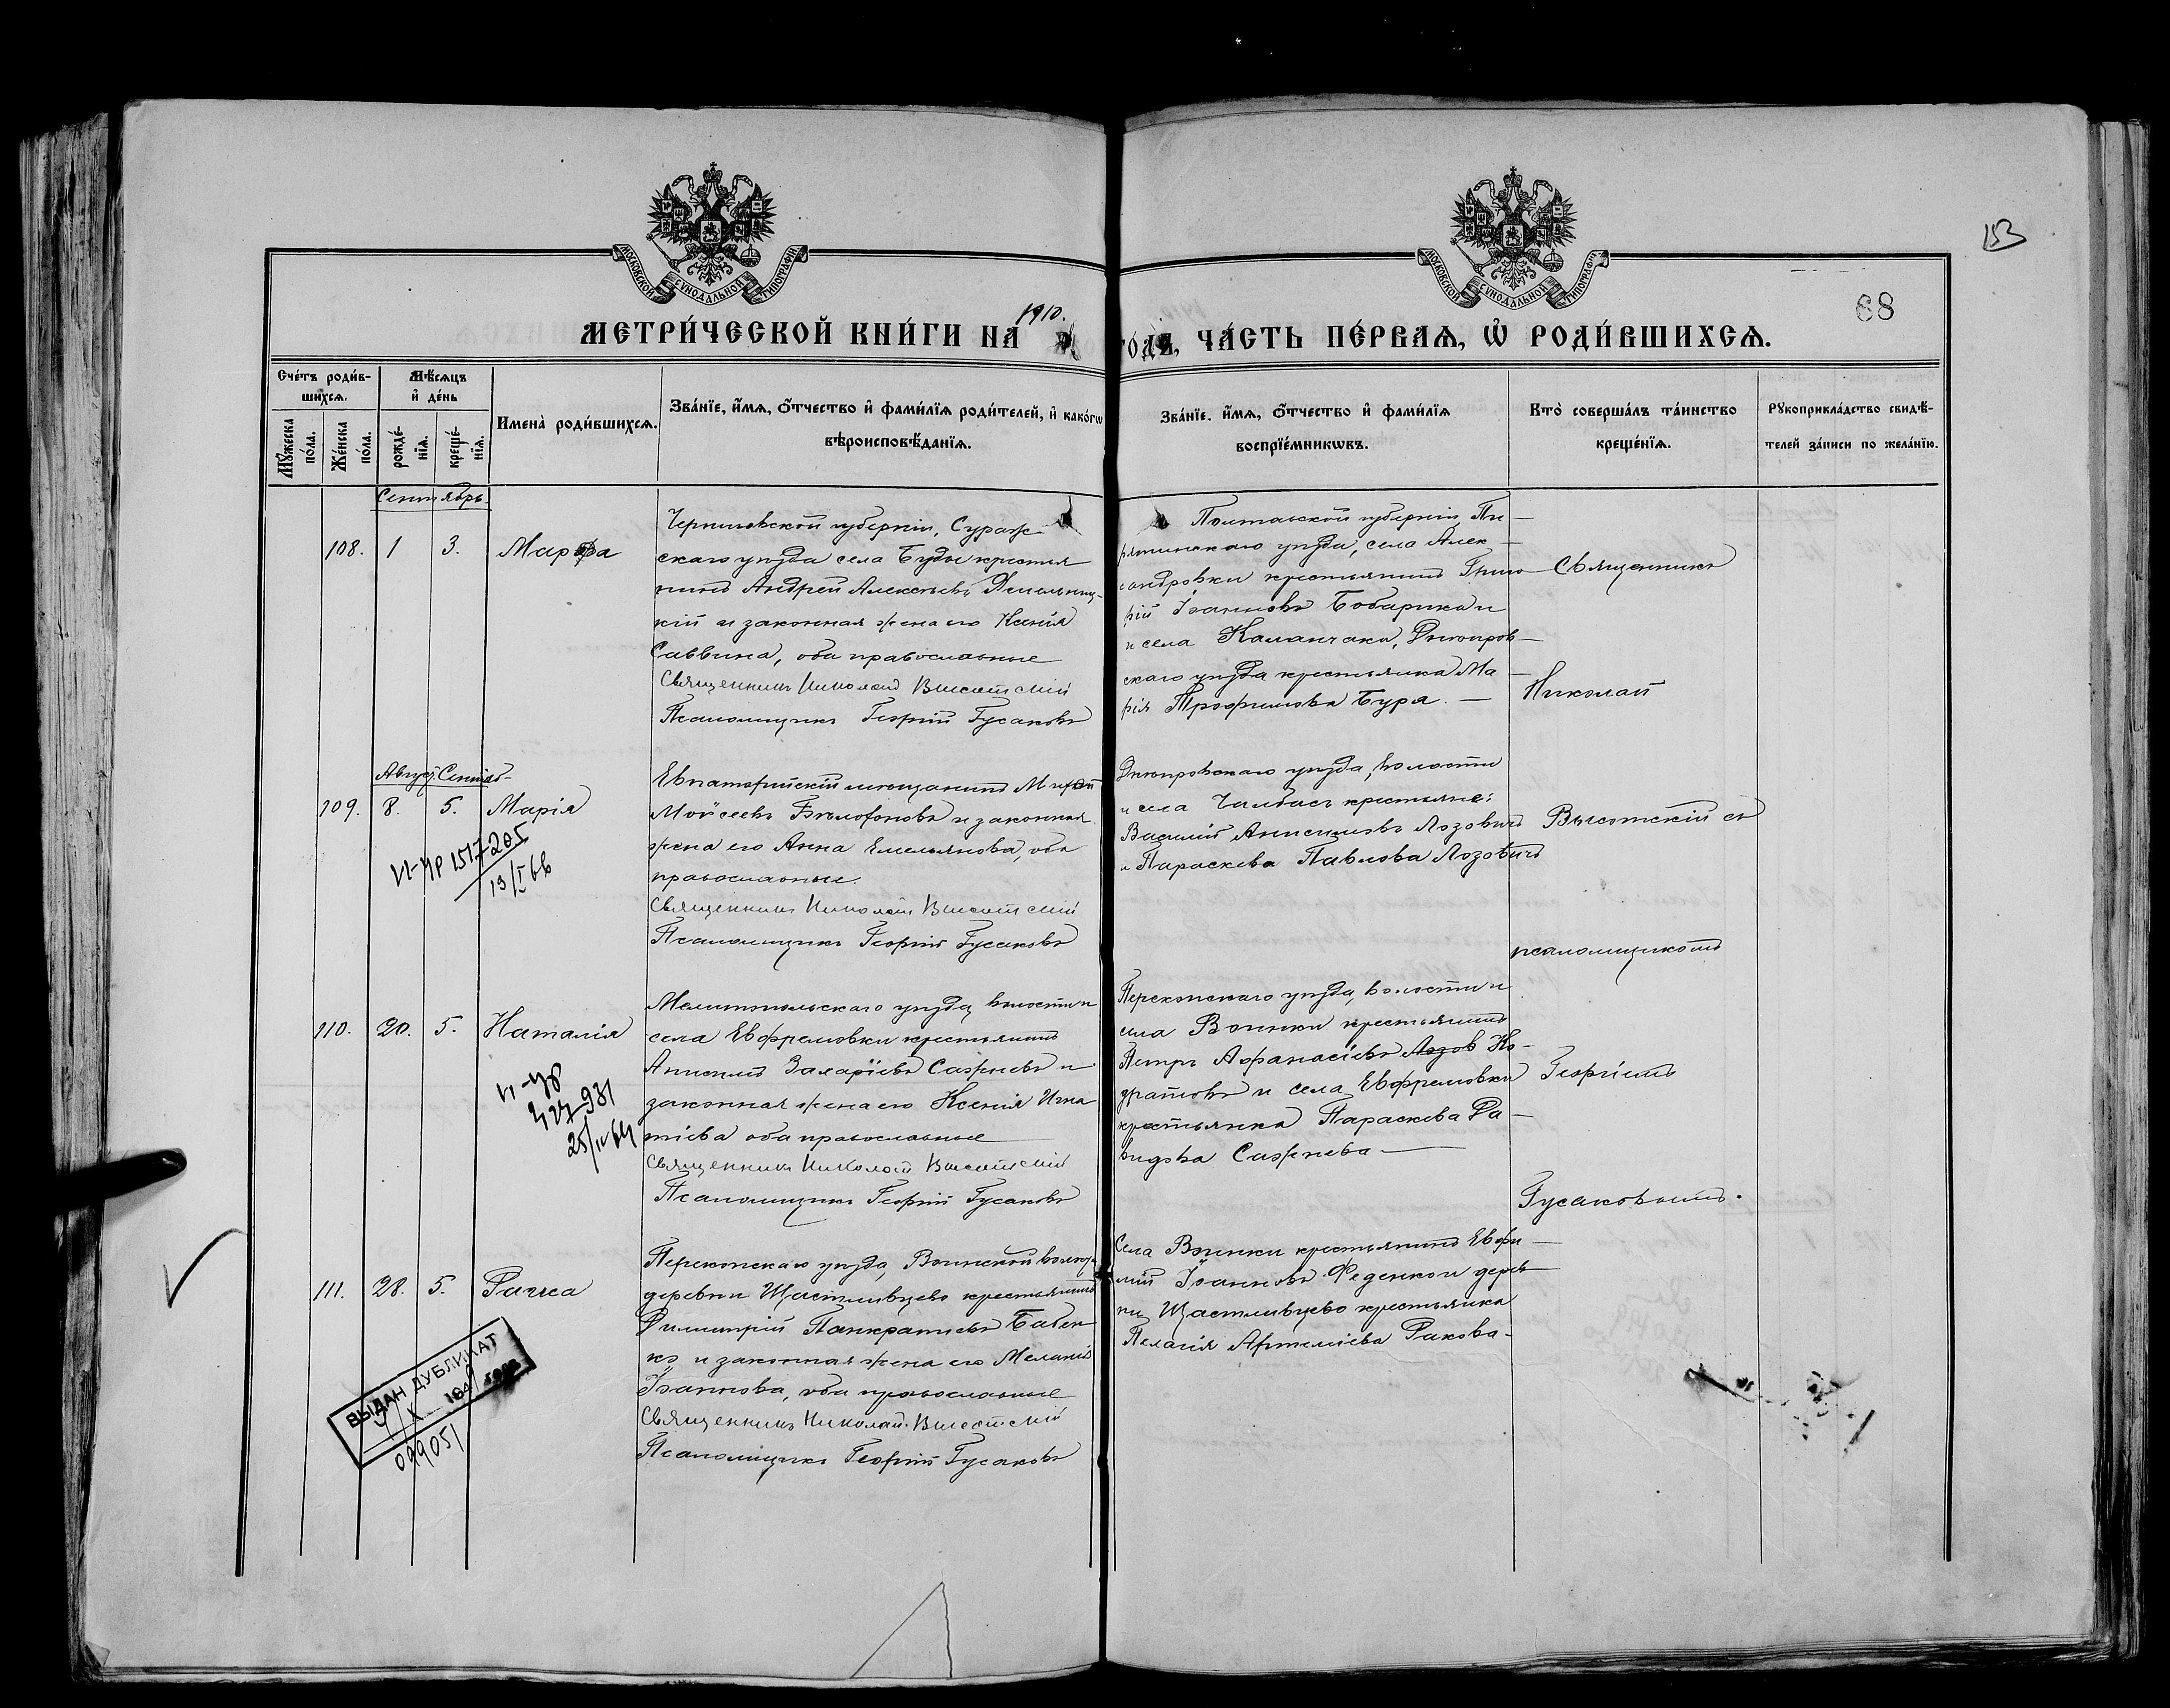 153
68
МОСКОВСКОЙ СѴНОДАЛЬНОЙ ТИПОГРАФІИ
МОСКОВСКОЙ СѴНОДАЛЬНОЙ ТИПОГРАФІИ
МЕТРИ́ЧЕСКОЙ КНИ́ГИ НА 1910. ГО́ДЪ, ЧА́СТЬ ПЕ́РВАѦ, Ѡ҆ РОДИ́ВШИХСѦ.
Сче́тъ роди́в-
шихсѧ.
Мꙋ́жеска по́ла.
Же́нска по́ла.
Мѣ́сѧцъ и҆ де́нь
рожде́-нїѧ.
креще́-нїѧ.
И҆мена̀ роди́вшихсѧ.
Зва́нїе, и҆́мѧ, ѻ҆́тчество и҆ фами́лїѧ роди́телей, и҆ како́гѡ
вѣроисповѣ́данїѧ.
Зва́нїе, и҆́мѧ, ѻ҆́тчество и҆ фами́лїѧ
воспрїе́мникѡвъ.
Кто̀ соверша́лъ та́инство
креще́нїѧ.
Рꙋкоприкла́дство свидѣ́-
телей за́писи по жела́нїю.
Сентябрь
108. 1 3. Марфа
Черниговской губерніи, Сураж-
скаго уѣзда села Буды крестья
нинъ Андрей Алексѣевъ
кій и законная жена его Ксенія
Саввина, оба православные
Священникъ Николай Высотскій
Псаломщикъ Георгій Гусаковъ
Полтавской губерніи, Пи-
рятинскаго уѣзда, села Алек-
сандровки крестьянинъ Григо-
рій Іоанновъ Бобарыка и
и села Каланчака, Днѣпров-
скаго уѣзда крестьянка Ма-
рія Трофимова Буря.
Священникъ
Николай
Август. Сентяб-
109. 8. 5. Марія
VI-ЧР 1517205
19/I 66
Евпаторійскій мѣщанинъ
Мойсеевъ и законная
жена его Анна Емельянова, оба
православные.
Священникъ Николай Высотскій
Псаломщикъ Георгій Гусаковъ
Днѣпровскаго уѣзда, волости
и села Чалбасъ крестьяне:
Василій Анисимовъ Лозовичъ
и Параскева Павлова Лозовичъ
Высотскій съ
псаломщикомъ
110. 20. 5. Наталія
931
25/IV 64
Мелитопольскаго уѣзда, волости и
села Ефремовки крестьянинъ
Анисимъ Захаріевъ Сажневъ и
законная жена его Ксенія Игна
тіева оба православные
Священникъ Николай Высотскій
Псаломщикъ Георгій Гусаковъ
Перекопскаго уѣзда, волости и
села Воинки крестьянинъ
Петръ Афанасіевъ Лозов Ко-
дратовъ и села Ефремовки
крестьянка Параскева Да-
видова Сажнева
Георгіемъ
Гусаковымъ.
111. 28. 5. Раиса
ВЫДАН ДУБЛИКАТ
099051
Перекопскаго уѣзда, Воинской волос.
деревни Щастливцево крестьянинъ
Димитрій Панкратіевъ Бабен
ко и законная жена его Меланія
Іоаннова, оба православные
Священникъ Николай Высотскій
Псаломщикъ Георгій Гусаковъ
Села Воинки крестьянинъ Евфи-
мій Іоанновъ Феденко и дерев
ни Щастливцево крестьянка
Пелагія Артеміева Ракова-